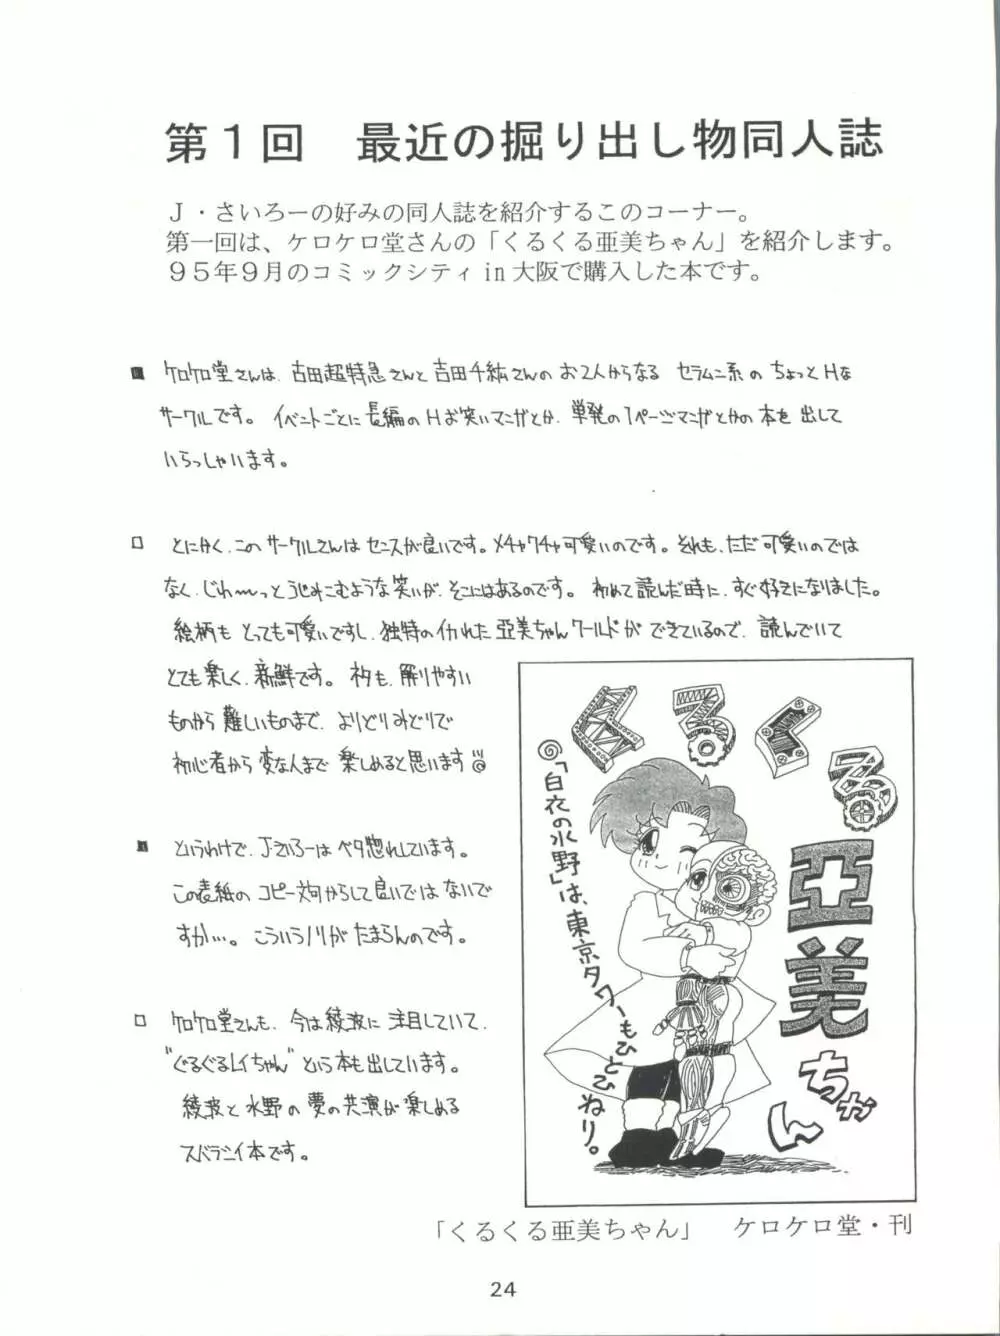 第１回　最近の掘り出し物同人誌
Ｊ・さいろーの好みの同人誌を紹介するこのコーナー。
第一回は、ケロケロ堂さんの「くるくる亜美ちゃん」を紹介します。
９５年９月のコミックシティ in 大阪で購入した本です。
■ ケロケロ堂さんは、古田超特急さんと吉田千紘さんのお2人からなる セラムン系の ちょっとHな
サークルです。 イベントごとに長編のHお笑いマンガとか、単発の1ページマンガとかの本を出して
いらっしゃいます。
□ とにかく、このサークルさんはセンスが良いです。メチャクチャ可愛いのです。それも、ただ可愛いのでは
なく、じわ〜〜っとうじみこむような笑いが、そこにはあるのです。 初めて読んだ時に、すぐ好きになりました。
絵柄もとっても可愛いですし、独特のイカれた亜美ちゃんワールドができているので、読んでいて
とても楽しく、新鮮です。 ネタも、解りやすい
ものから難しいものまで、よりどりみどりで
初心者から変な人まで楽しめると思います
■ というわけで、J・さいろーはベタ惚れしています。
この表紙のコピー文句からして良いではないで
すか…。 こういうノリがたまらんのです。
□ ケロケロ堂さんも、今は綾波に注目していて、
“ぐるぐるレイちゃん” という本も出しています。
綾波と水野の夢の共演が楽しめる
スバラシイ本です。
くるくる
亞美ちゃん
「白衣の水野」は、東京タワーもひとひねり。
「くるくる亜美ちゃん」　ケロケロ堂・刊
24